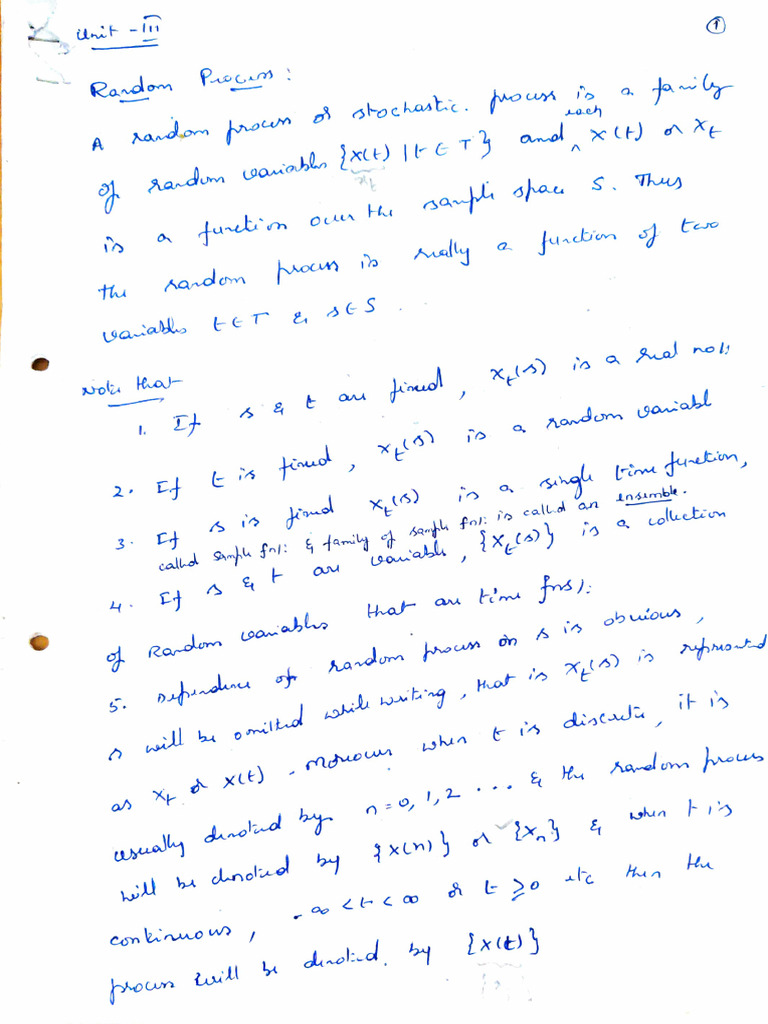 Unit - III
1
Random Process:
A random process or stochastic. process is a family
of random variables {X(t) | t ∈ T} and each X(t) or Xt
Xt
is a function over the sample space S. Thus
the random process is really a function of two
variables t ∈ T & s ∈ S.
Note that
1. If s & t are fixed, Xt(s) is a real no!:
2. If t is fixed, Xt(s) is a random variabl
3. If s is fixed Xt(s) is a single time function,
called sample fn!: & family of sample fns!: is called an ensemble.
4. If s & t are variable, {Xt(s)} is a collection
of Random variables that are time fns!:
5. Dependence of random process on s is obvious,
s will be omitted while writing, that is Xt(s) is represented
as Xt or X(t). Moreover when t is discrete, it is
usually denoted by n = 0, 1, 2 ... & the random process
will be denoted by {X(n)} or {Xn} & when t is
continuous, -∞ < t < ∞ or t ≥ 0 etc then the
process will be denoted. by {X(t)}